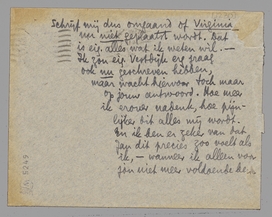 Schrijf mij dus omgaand of Virginia
nu niet geplaatst wordt. Dat
is eig. alles wat ik weten wil. —
Ik zou eig. Vestdijk erg graag
ook nu geschreven hebben,
maar wacht hiervoor toch maar
op jouw antwoord. Hoe meer
ik erover nadenk, hoe pijn-
lijker dit alles mij wordt.
En ik ben er zeker van dat
Jan dit precies zoo voelt als
ik, — wanneer ik alleen voor
zou niet meer voldoende